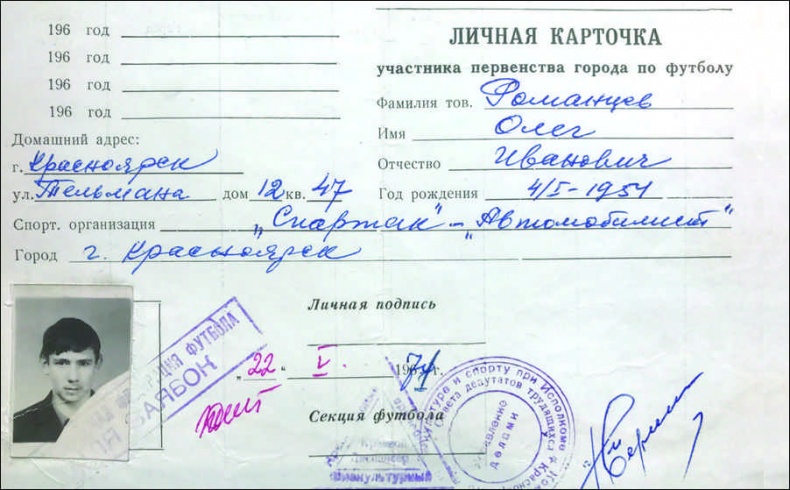 196 год
196 год
196 год
196 год
Домашний адрес:
г. Красноярск
ул. Тельмана дом 12 кв. 47
ЛИЧНАЯ КАРТОЧКА
участника первенства города по футболу
Фамилия тов. Романцев
Имя Олег
Отчество Иванович
Год рождения 4/I-1954
Спорт. организация „Спартак"-„Автомобилист"
Город г. Красноярск
Личная подпись
„22" V. 1971 г.
Секция футбола
ФУТБОЛА
физкультурный
культуре и спорту при Исполкоме
Совета депутатов трудящихся
делами